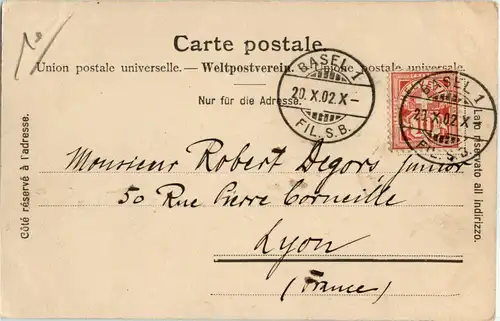 Carte postale.
Union postale universelle. — Weltpostverein. — Unione postale universale.
Nur für die Adresse.
BASEL 1
20.X.02.X-
FIL. S.B.
BASEL 1
20.X.02.X
FIL. S.B.
10
Côté réservé à l'adresse.
Lato riservato all indirizzo.
Monsieur Robert Degors, junior
50 Rue Pierre Corneille
Lyon
(France)